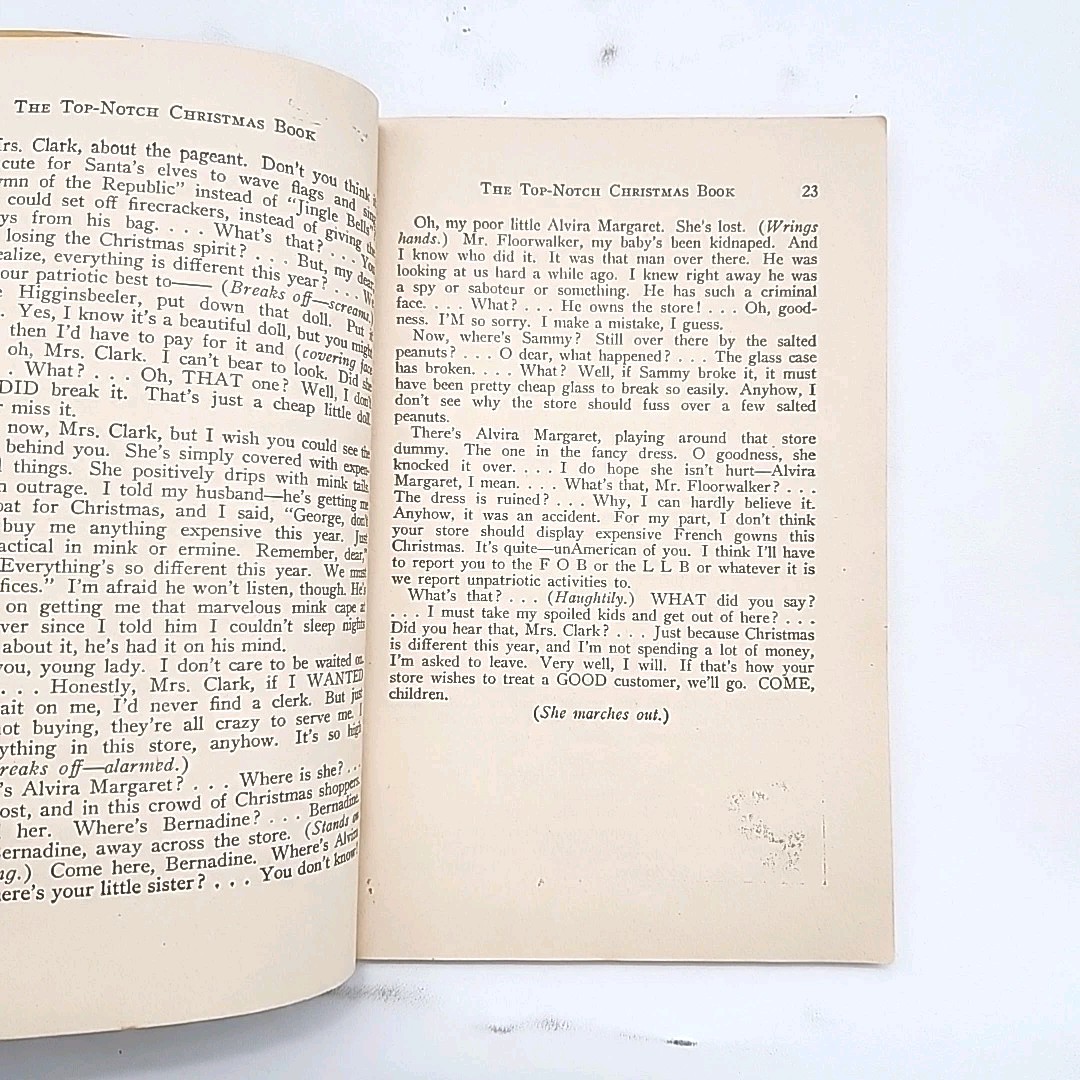 THE TOP-NOTCH CHRISTMAS BOOK
rs. Clark, about the pageant. Don't you think
cute for Santa's elves to wave flags and sing
ymn of the Republic" instead of "Jingle Bells"
could set off firecrackers, instead of giving the
ys from his bag. . . . What's that? . . . You
losing the Christmas spirit? . . . But, my dear
ealize, everything is different this year? . . . We
our patriotic best to—— (Breaks off—screams.)
Higginsbeeler, put down that doll. Put it
. Yes, I know it's a beautiful doll, but you might
then I'd have to pay for it and (covering face
oh, Mrs. Clark. I can't bear to look. Did she
. What? . . . Oh, THAT one? Well, I don't
DID break it. That's just a cheap little doll
miss it.
now, Mrs. Clark, but I wish you could see the
behind you. She's simply covered with expen-
things. She positively drips with mink tails
outrage. I told my husband—he's getting me
oat for Christmas, and I said, "George, don't
buy me anything expensive this year. Just
actical in mink or ermine. Remember, dear,
Everything's so different this year. We must
fices." I'm afraid he won't listen, though. He's
on getting me that marvelous mink cape at
ver since I told him I couldn't sleep nights
about it, he's had it on his mind.
you, young lady. I don't care to be waited on.
. . . Honestly, Mrs. Clark, if I WANTED
ait on me, I'd never find a clerk. But just
ot buying, they're all crazy to serve me. I
ything in this store, anyhow. It's so high
reaks off—alarmed.)
's Alvira Margaret? . . . Where is she? . . .
ost, and in this crowd of Christmas shoppers.
her. Where's Bernadine? . . . Bernadine.
ernadine, away across the store. (Stands on
ng.) Come here, Bernadine. Where's Alvira
ere's your little sister? . . . You don't know?
THE TOP-NOTCH CHRISTMAS BOOK 23
Oh, my poor little Alvira Margaret. She's lost. (Wrings
hands.) Mr. Floorwalker, my baby's been kidnaped. And
I know who did it. It was that man over there. He was
looking at us hard a while ago. I knew right away he was
a spy or saboteur or something. He has such a criminal
face. . . . What? . . . He owns the store! . . . Oh, good-
ness. I'M so sorry. I make a mistake, I guess.
Now, where's Sammy? Still over there by the salted
peanuts? . . . O dear, what happened? . . . The glass case
has broken. . . . What? Well, if Sammy broke it, it must
have been pretty cheap glass to break so easily. Anyhow, I
don't see why the store should fuss over a few salted
peanuts.
There's Alvira Margaret, playing around that store
dummy. The one in the fancy dress. O goodness, she
knocked it over. . . . I do hope she isn't hurt—Alvira
Margaret, I mean. . . . What's that, Mr. Floorwalker? . . .
The dress is ruined? . . . Why, I can hardly believe it.
Anyhow, it was an accident. For my part, I don't think
your store should display expensive French gowns this
Christmas. It's quite—unAmerican of you. I think I'll have
to report you to the F O B or the L L B or whatever it is
we report unpatriotic activities to.
What's that? . . . (Haughtily.) WHAT did you say?
. . . I must take my spoiled kids and get out of here? . . .
Did you hear that, Mrs. Clark? . . . Just because Christmas
is different this year, and I'm not spending a lot of money,
I'm asked to leave. Very well, I will. If that's how your
store wishes to treat a GOOD customer, we'll go. COME,
children.
(She marches out.)